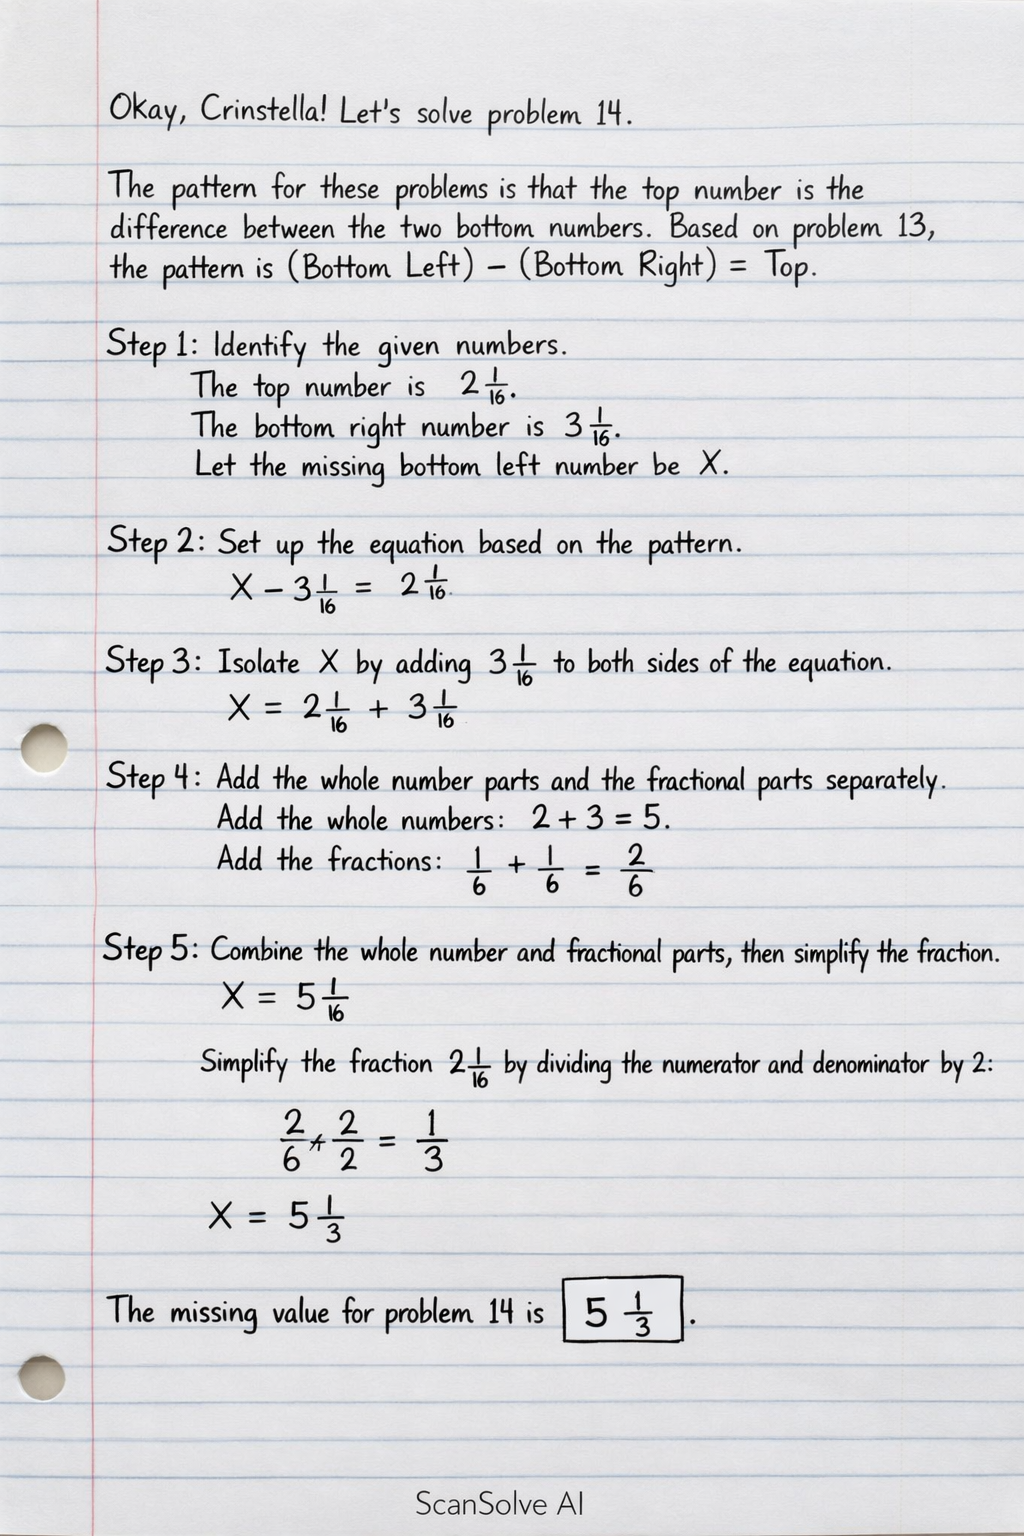 Okay, Crinstella! Let's solve problem 14.
The pattern for these problems is that the top number is the
difference between the two bottom numbers. Based on problem 13,
the pattern is (Bottom Left) – (Bottom Right) = Top.
Step 1: Identify the given numbers.
The top number is 2 1/16.
The bottom right number is 3 1/16.
Let the missing bottom left number be X.
Step 2: Set up the equation based on the pattern.
X – 3 1/16 = 2 1/16.
Step 3: Isolate X by adding 3 1/16 to both sides of the equation.
X = 2 1/16 + 3 1/16
Step 4: Add the whole number parts and the fractional parts separately.
Add the whole numbers: 2 + 3 = 5.
Add the fractions: 1/6 + 1/6 = 2/6
Step 5: Combine the whole number and fractional parts, then simplify the fraction.
X = 5 1/16
Simplify the fraction 2 1/16 by dividing the numerator and denominator by 2:
2/6 2/2 = 1/3
X = 5 1/3
The missing value for problem 14 is 5 1/3.
ScanSolve AI